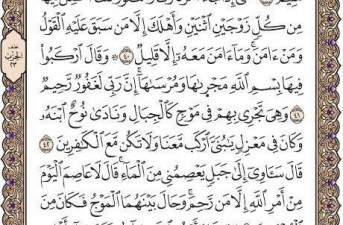 مِن كُلّٖ زَوۡجَيۡنِ ٱثۡنَيۡنِ وَأَهۡلَكَ إِلَّا مَن سَبَقَ عَلَيۡهِ ٱلۡقَوۡلُ
وَمَنۡ ءَامَنَۚ وَمَآ ءَامَنَ مَعَهُۥٓ إِلَّا قَلِيلٞ ٤٠ ۞ وَقَالَ ٱرۡكَبُواْ
فِيهَا بِسۡمِ ٱللَّهِ مَجۡرٜىٰهَا وَمُرۡسَىٰهَآۚ إِنَّ رَبِّي لَغَفُورٞ رَّحِيمٞ
٤١ وَهِيَ تَجۡرِي بِهِمۡ فِي مَوۡجٖ كَٱلۡجِبَالِ وَنَادَىٰ نُوحٌ ٱبۡنَهُۥ
وَكَانَ فِي مَعۡزِلٖ يَٰبُنَيَّ ٱرۡكَب مَّعَنَا وَلَا تَكُن مَّعَ ٱلۡكَٰفِرِينَ ٤٢
قَالَ سَـَٔاوِيٓ إِلَىٰ جَبَلٖ يَعۡصِمُنِي مِنَ ٱلۡمَآءِۚ قَالَ لَا عَاصِمَ ٱلۡيَوۡمَ
مِنۡ أَمۡرِ ٱللَّهِ إِلَّا مَن رَّحِمَۚ وَحَالَ بَيۡنَهُمَا ٱلۡمَوۡجُ فَكَانَ مِنَ